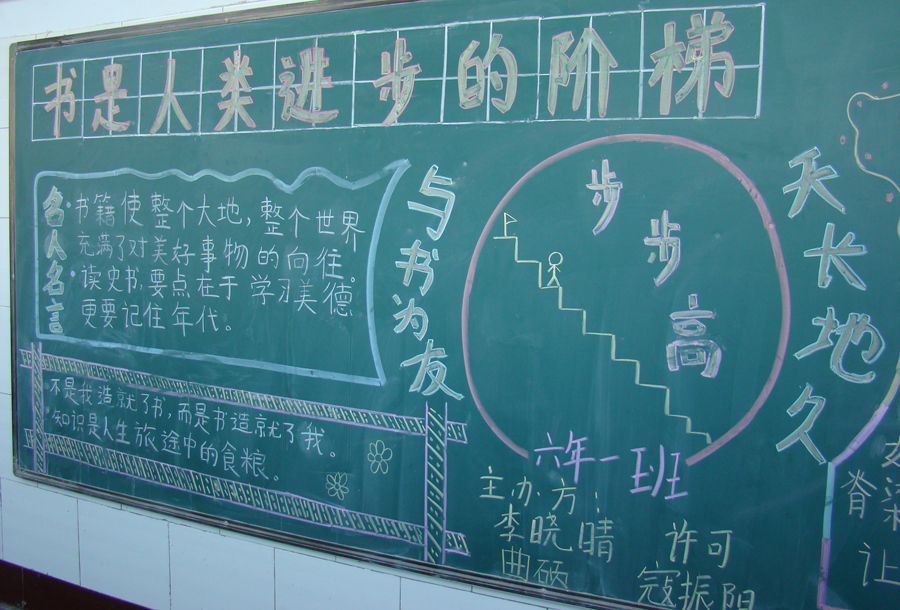 书是人类进步的阶梯
名人名言
·书籍使整个大地,整个世界
充满了对美好事物的向往。
·读史书,要点在于学习美德
更要记住年代。
与书为友
天长地久
步步高
·不是我造就了书,而是书造就了我。
·知识是人生旅途中的食粮。
六年一班
主办方:
李晓晴
曲硕
许可
寇振阳
脊梁
让